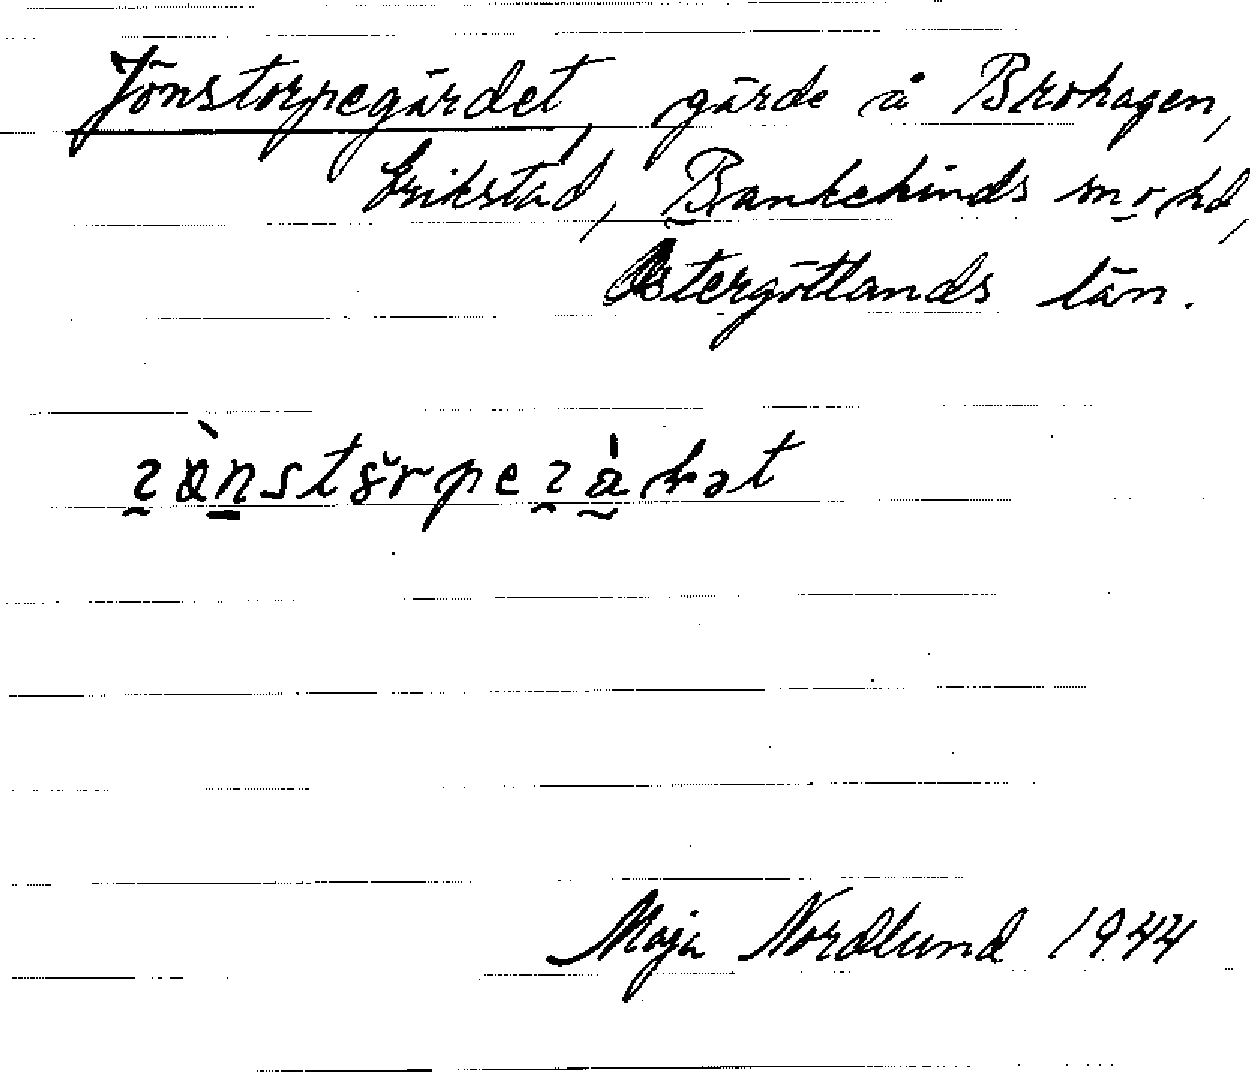 Jönstorpegärdet, gärde å Brohagen,
Erikstad, Bankekinds sn o. hd,
Östergötlands län.
Maja Nordlund 1944